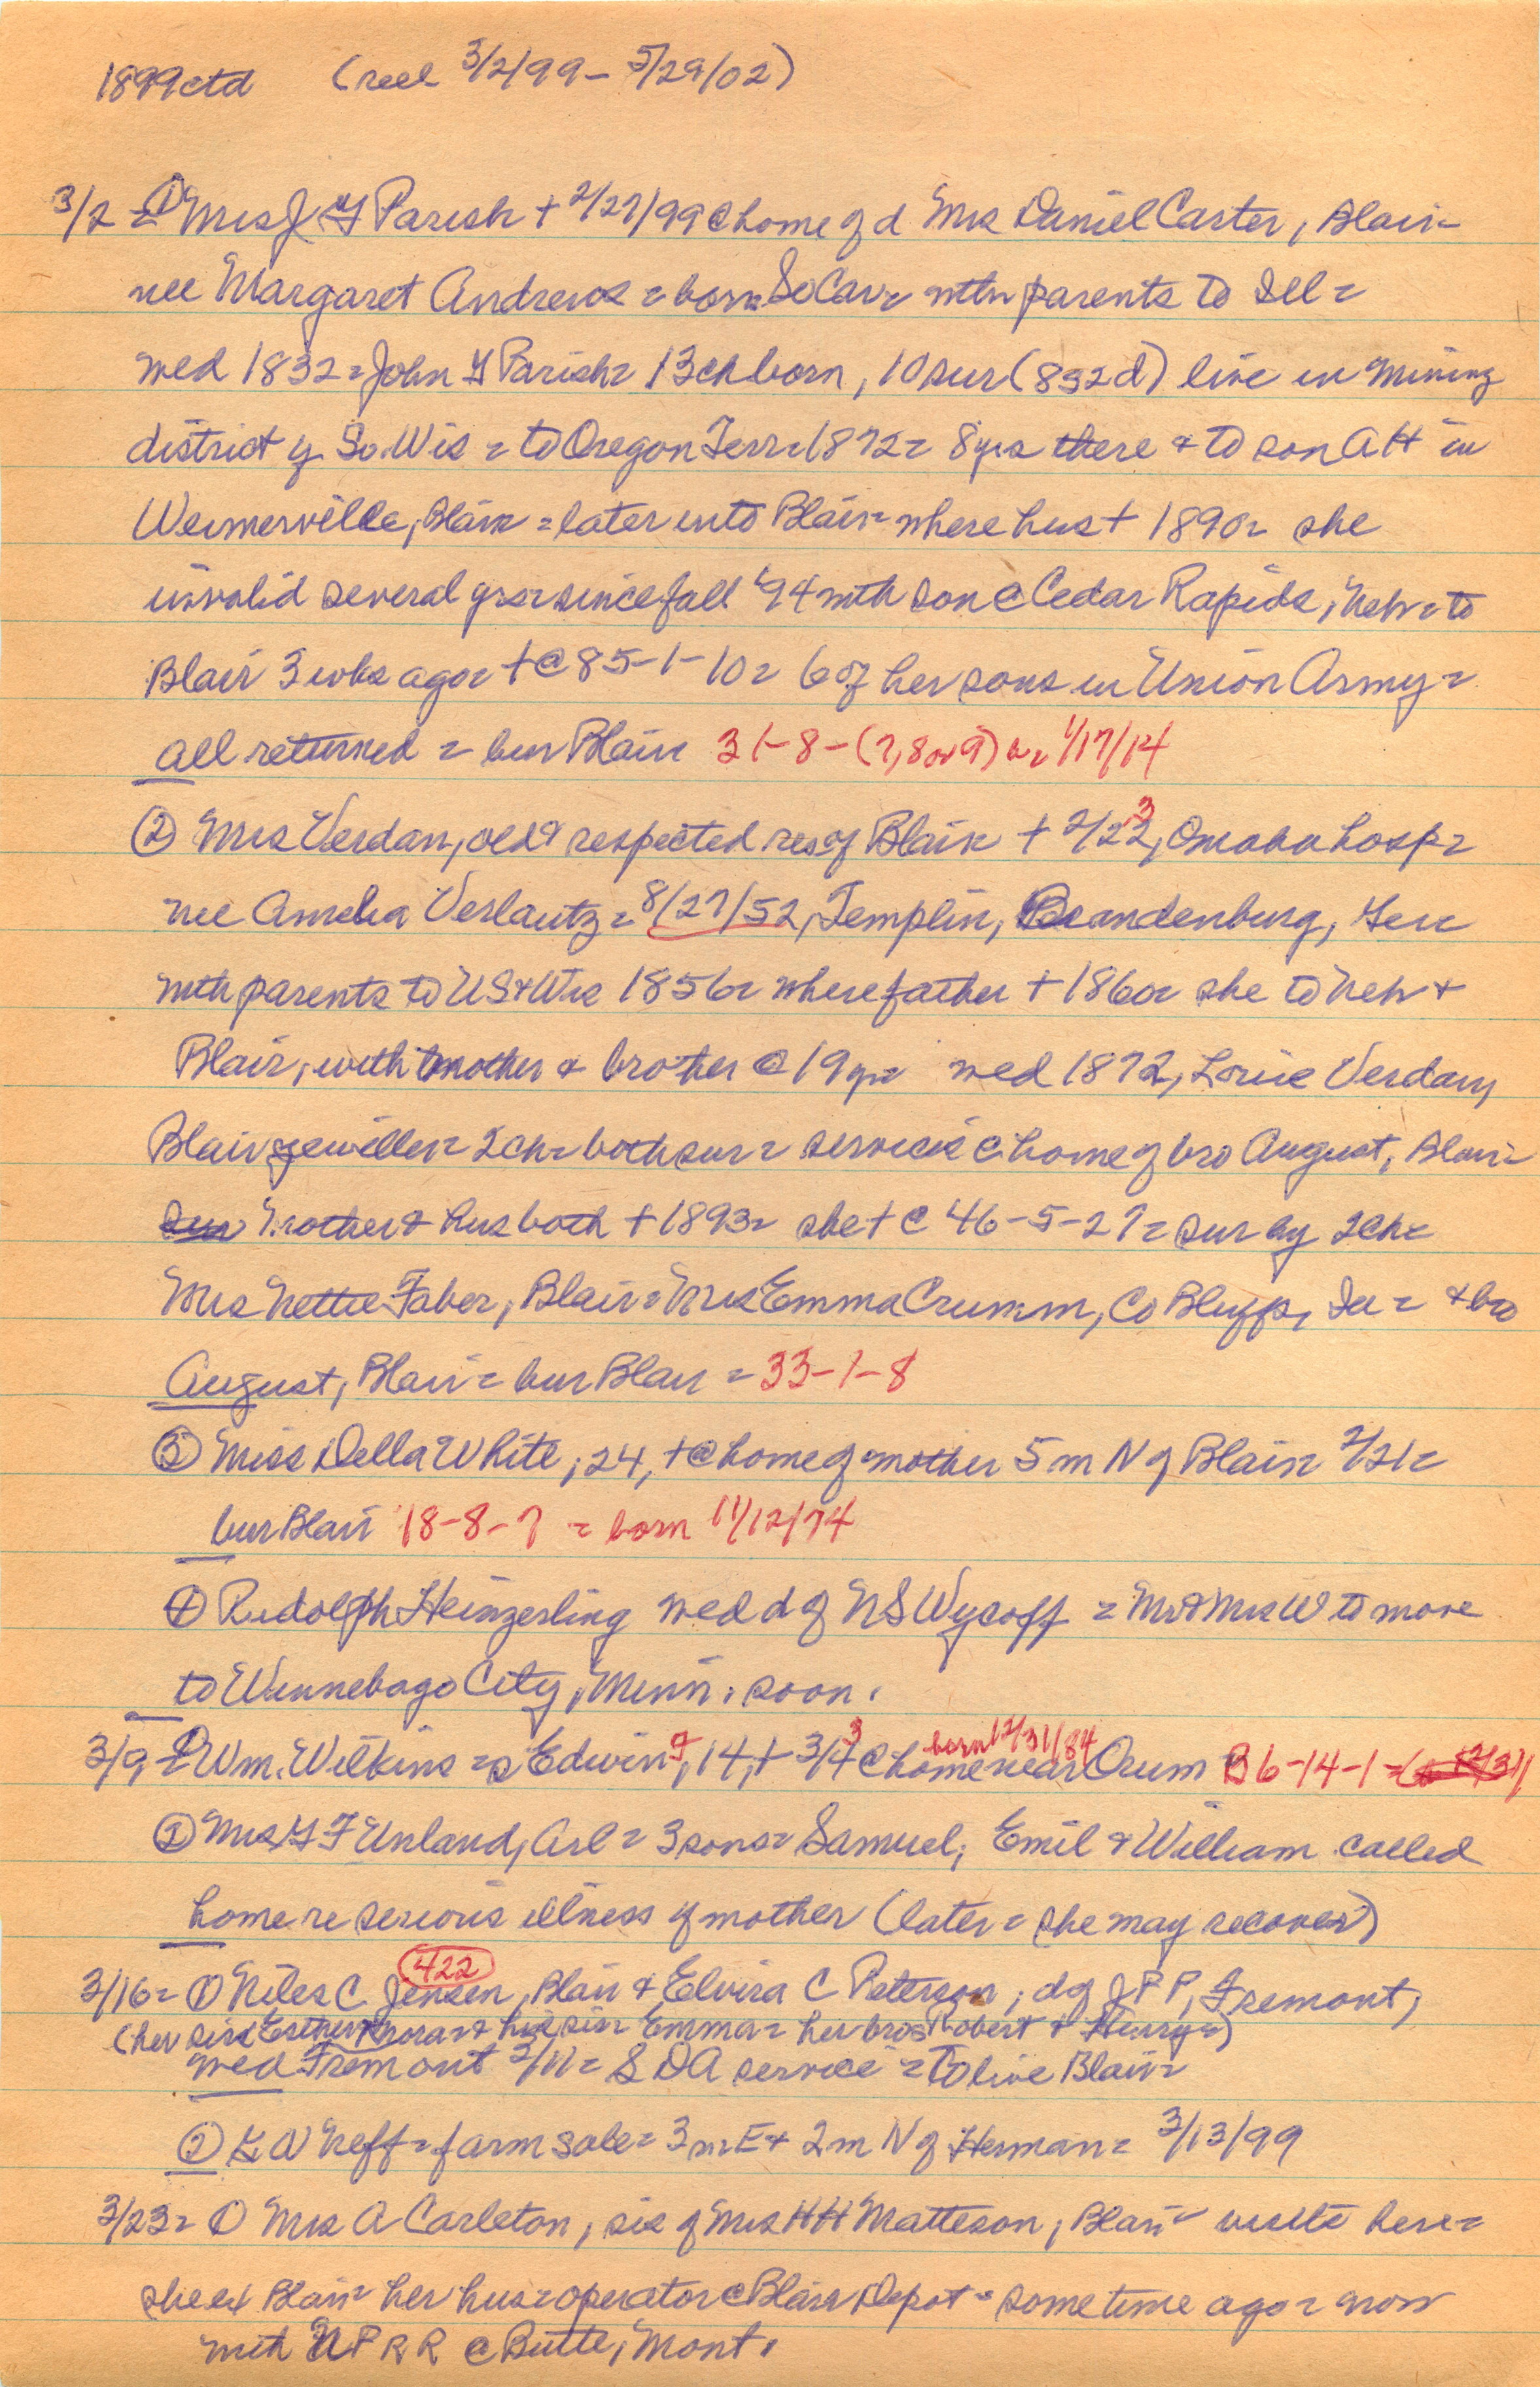 1899 ctd (reel 3/2/99 - 5/29/02)
3/2 = ① Mrs J G Parish + 2/27/99 @ home of d Mrs Daniel Carter, Blair =
nee Margaret Andrews = born So Car = with parents to Ill =
wed 1832 = John G Parish = 13 ch born, 10 sur (8s2d) live in mining
district of So. Wis = to Oregon Terr = 1872 = 8 yrs there & to son A H in
Blair = later into Blair = where hus + 1890 = she
invalid several yrs = since fall '94 with son @ Cedar Rapids, Neb = to
Blair 3 wks ago = + @ 85-1-10 = 6 of her sons in Union Army =
all returned = bur Blair 31-8-(7,8 or 9) b = 1/17/14
② Mrs Verdan, old & respected res of Blair + 2/22 3, Omaha hosp =
nee Amelia = 8/27/52, Templin, Brandenburg, Ger
with parents to US & Wis 1856 = where father + 1860 = she to Neb +
Blair, with mother & brother @ 19 yr = wed 1872, Louie Verdan,
Blair jeweller = 2 ch = both sur = services @ home of bro August, Blair =
sur Mother & hus both + 1893 = she + @ 46-5-27 = sur by 2 ch =
Mrs Nettie Faber, Blair = Mrs Emma Crumm, Co Bluffs, Ia = & bro
August, Blair = bur Blair = 33-1-8
③ Miss Della White, 24, + @ home of mother 5 m N of Blair 2/21 =
bur Blair 18-8-7 = born 11/12/74
④ Rudolph Heinzerling wed d of N S Wycoff = Mr & Mrs W to move
to Winnebago City, Minn. soon.
born 12/31/84
3/9 = ① Wm. Wilkins = s Edwin, 14, + 3/4 3 @ home near Orum B 6-14-1 =
② Mrs G F Unland, Arl = 3 sons = Samuel, Emil & William called
home re serious illness of mother (later = she may recover)
422
3/16 = ① Niles C Jensen, Blair & Elvira C Peterson, d of J P P, Fremont,
(her sis Esther & Nora = & his sis = Emma = her bros Robert & Henry =)
wed Fremont 3/11 = S D A service = to live Blair =
② G W Neff = farm sale = 3 m E & 2 m N of Herman = 3/13/99
3/23 = ① Mrs A Carleton, sis of Mrs H H Matteson, Blair = visits here =
she ex Blair = her hus = operator @ Blair Depot = some time ago = now
with N P R R @ Butte, Mont.